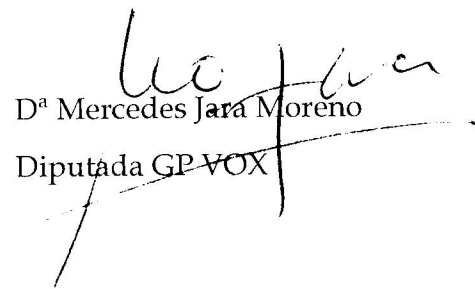 Dª Mercedes Jara Moreno
Diputada GP VOX